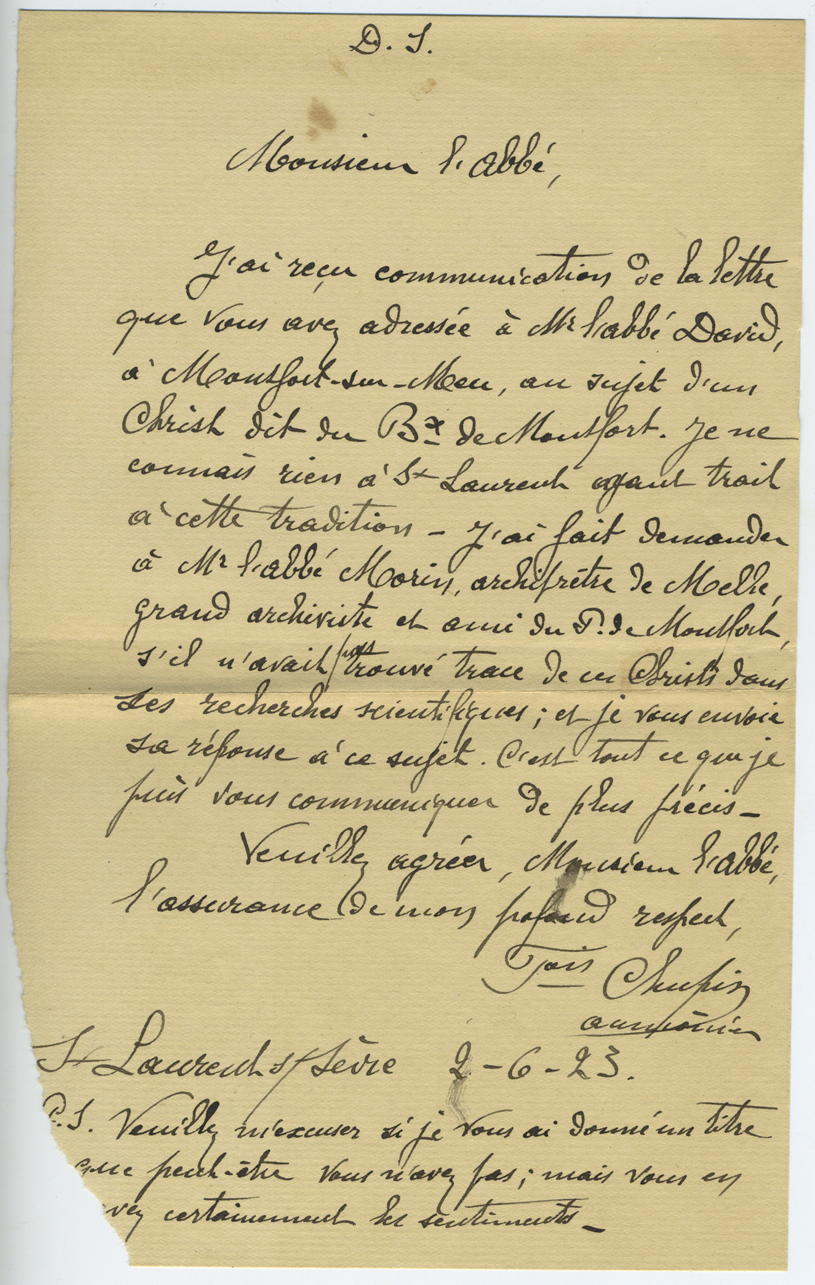 D. S.
Monsieur l'abbé,
J'ai reçu communication de la lettre
que vous avez adressée à Mr l'abbé David,
à Montfort-sur-Meu, au sujet d'un
Christ dit du Bx de Montfort. Je ne
connais rien à St Laurent ayant trait
à cette tradition - J'ai fait demander
à Mr l'abbé Morin, archiprêtre de Melle,
grand archiviste et ami du P. de Montfort,
s'il n'avait pas trouvé trace de ce Christ dans
ses recherches scientifiques ; et je vous envoie
sa réponse à ce sujet. C'est tout ce que je
puis vous communiquer de plus précis -
Veuillez agréer, Monsieur l'abbé,
l'assurance de mon profond respect,
Chupin
aumônier
St Laurent s/ Sèvre 2-6-23.
P.S. Veuillez m'excuser si je vous ai donné un titre
que peut-être vous n'avez pas ; mais vous en
avez certainement les sentiments -